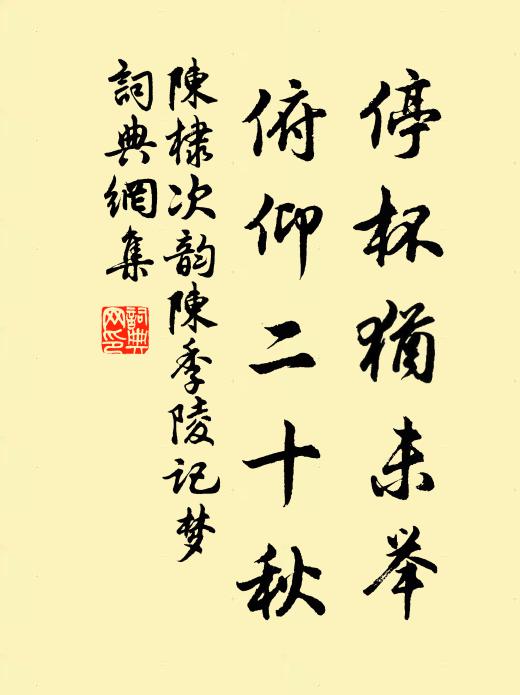 停杯猶未举
俯仰二十秋
陳棣次韵陳季陵记梦
詞典網集
詞典网印